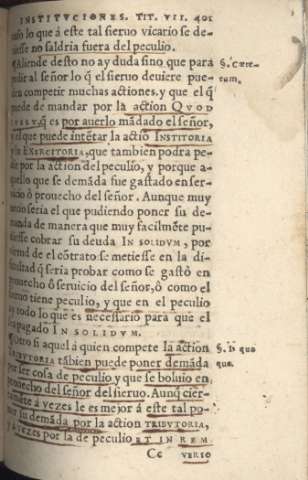 INSTITVCIONES. TIT. VII. 401
tuso lo que á este tal sieruo vicario se de-
uiesse no saldria fuera del peculio.
¶Aliende desto no ay duda sino que para
pedir al señor lo q̃ el sieruo deuiere pue-
da competir muchas actiones. y que el q̃
puede mandar por la action QVOD
IVSSV, q̃ es por auerlo mãdado el señor,
y el que puede intẽtar la actiõ INSTITORIA
y la EXERCITORIA, que tambien podra pe-
dir por la action del peculio, y porque a-
quello que se demãda fue gastado en ser-
uicio ò prouecho del señor. Aunque muy
necio seria el que pudiendo poner su de-
manda de manera que muy facilmẽte pu-
diesse cobrar su deuda IN SOLIDVM, por
virtud de el cõtrato se metiesse en la di-
ficultad q̃ seria probar como se gastò en
prouecho ò seruicio del señor, ô como el
sieruo tiene peculio, y que en el peculio
ay todo lo que es necessario para que el
sea pagado IN SOLIDVM.
¶Otro si aquel á quien compete la action
TRIBVTORIA tãbien puede poner demãda
por ser cosa de peculio y que se boluio en
prouecho del señor del sieruo. Aunq̃ cier-
tamẽte á vezes le es mejor á este tal po-
ner su demãda por la action TRIBVTORIA,
y á vezes por la de peculio ET IN REM
Cc VERSO
§. Cæte-
rum.
§. Is quo
que.